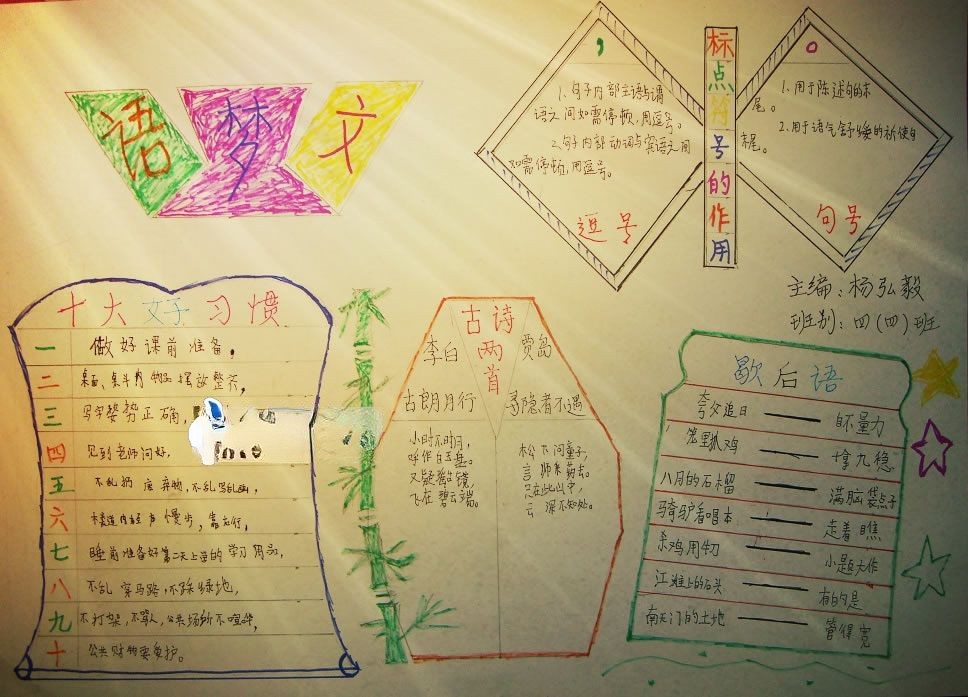 语梦文
标点符号的作用
，
1、句子内部主语与谓
语之间如需停顿，用逗号。
2、句子内部动词与宾语之间
如需停顿，用逗号。
逗号
。
1、用于陈述句的末
尾。
2、用于语气舒缓的祈使句
末尾。
句号
主编：杨弘毅
班别：四（四）班
十大好习惯
一 做好课前准备，
二 桌面、桌斗内物品摆放整齐，
三 写字姿势正确，
四 见到老师问好，
五 不乱扔废弃物，不乱写乱画，
六 楼道内轻声慢步，靠右行，
七 睡前准备好第二天上学的学习用品，
八 不乱穿马路，不踩绿地，
九 不打架，不骂人，公共场所不喧哗，
十 公共财物要爱护。
古诗两首
李白
古朗月行
小时不识月，
呼作白玉盘。
又疑瑶台镜，
飞在碧云端。
贾岛
寻隐者不遇
松下问童子，
言师采药去。
只在此山中，
云深不知处。
歇后语
夸父追日——自不量力
笼里抓鸡——十拿九稳
八月的石榴——满脑袋点子
马骑驴看唱本——走着瞧
杀鸡用牛刀——小题大作
江滩上的石头——有的是
南天门的土地——管得宽